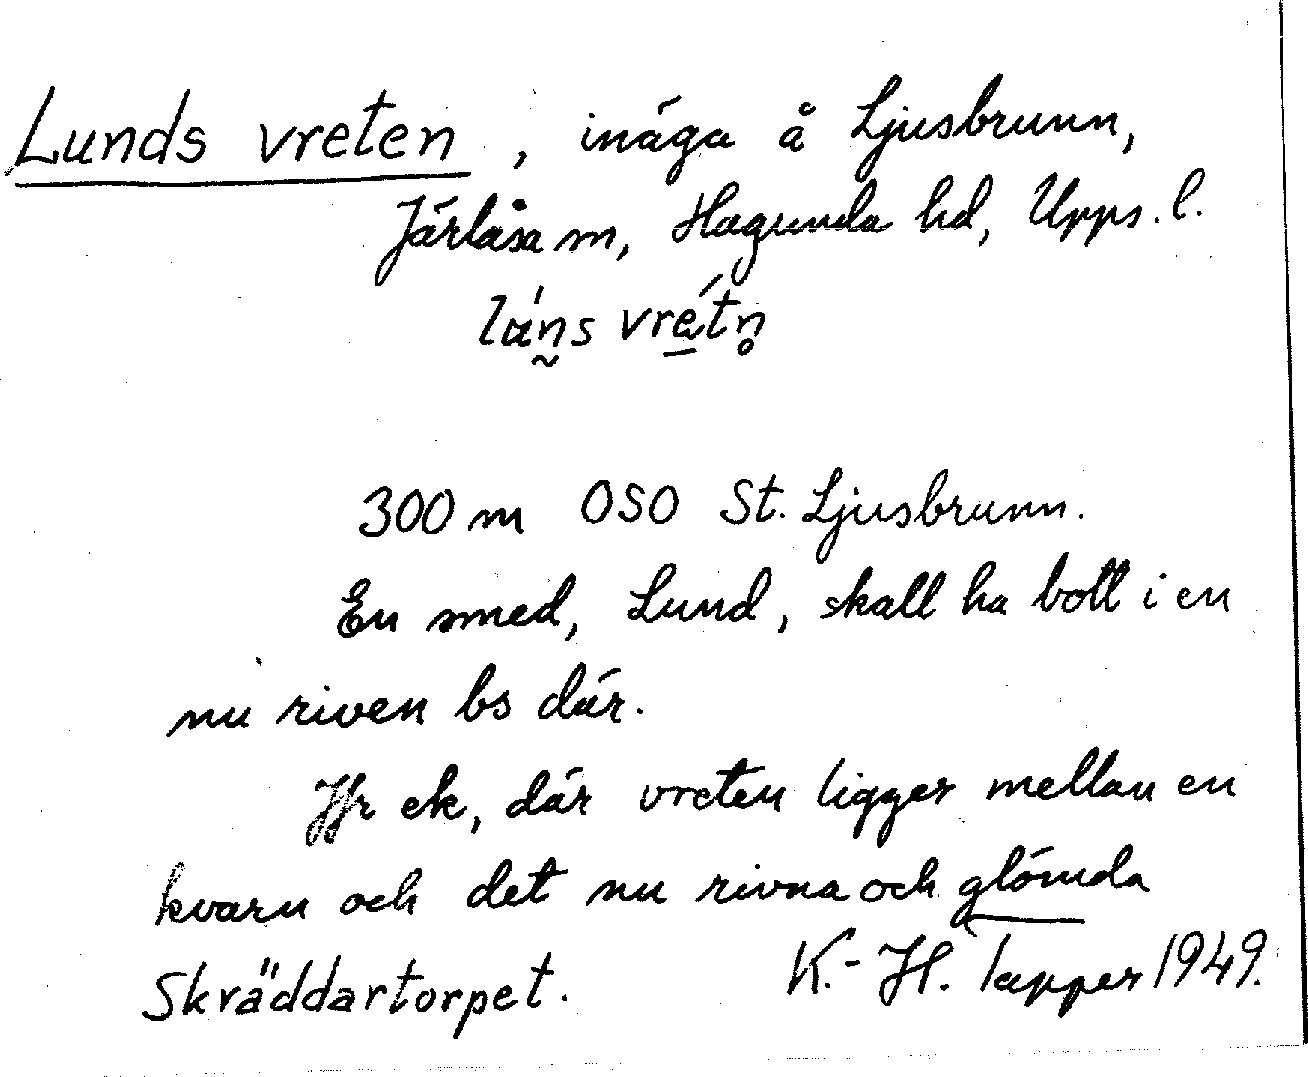 Lunds vreten, inäga å Ljusbrunn,
Järlåsa sn, Hagunda hd, Upps. l.
vrétn̥
300 m OSO St. Ljusbrunn.
En smed, Lund, skall ha bott i en
nu riven bs där.
Jfr ek, där vreten ligger mellan en
kvarn och det nu rivna och glömda
Skräddartorpet. K.-H. Tapper 1949.